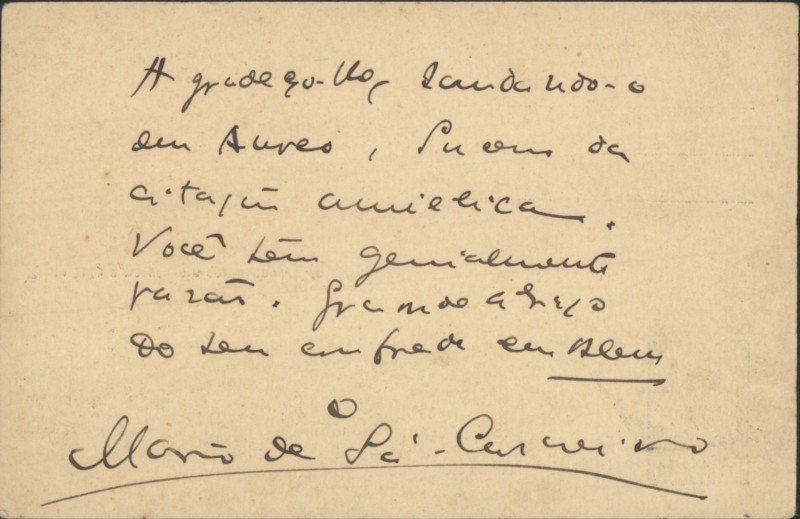 Agradeço-lhe, saudando-o
em Aureo, o
citação amielica.
Você tem genialmente
razão. Grande abraço
do seu confrade em Alem
o
Mario de Sá-Carneiro